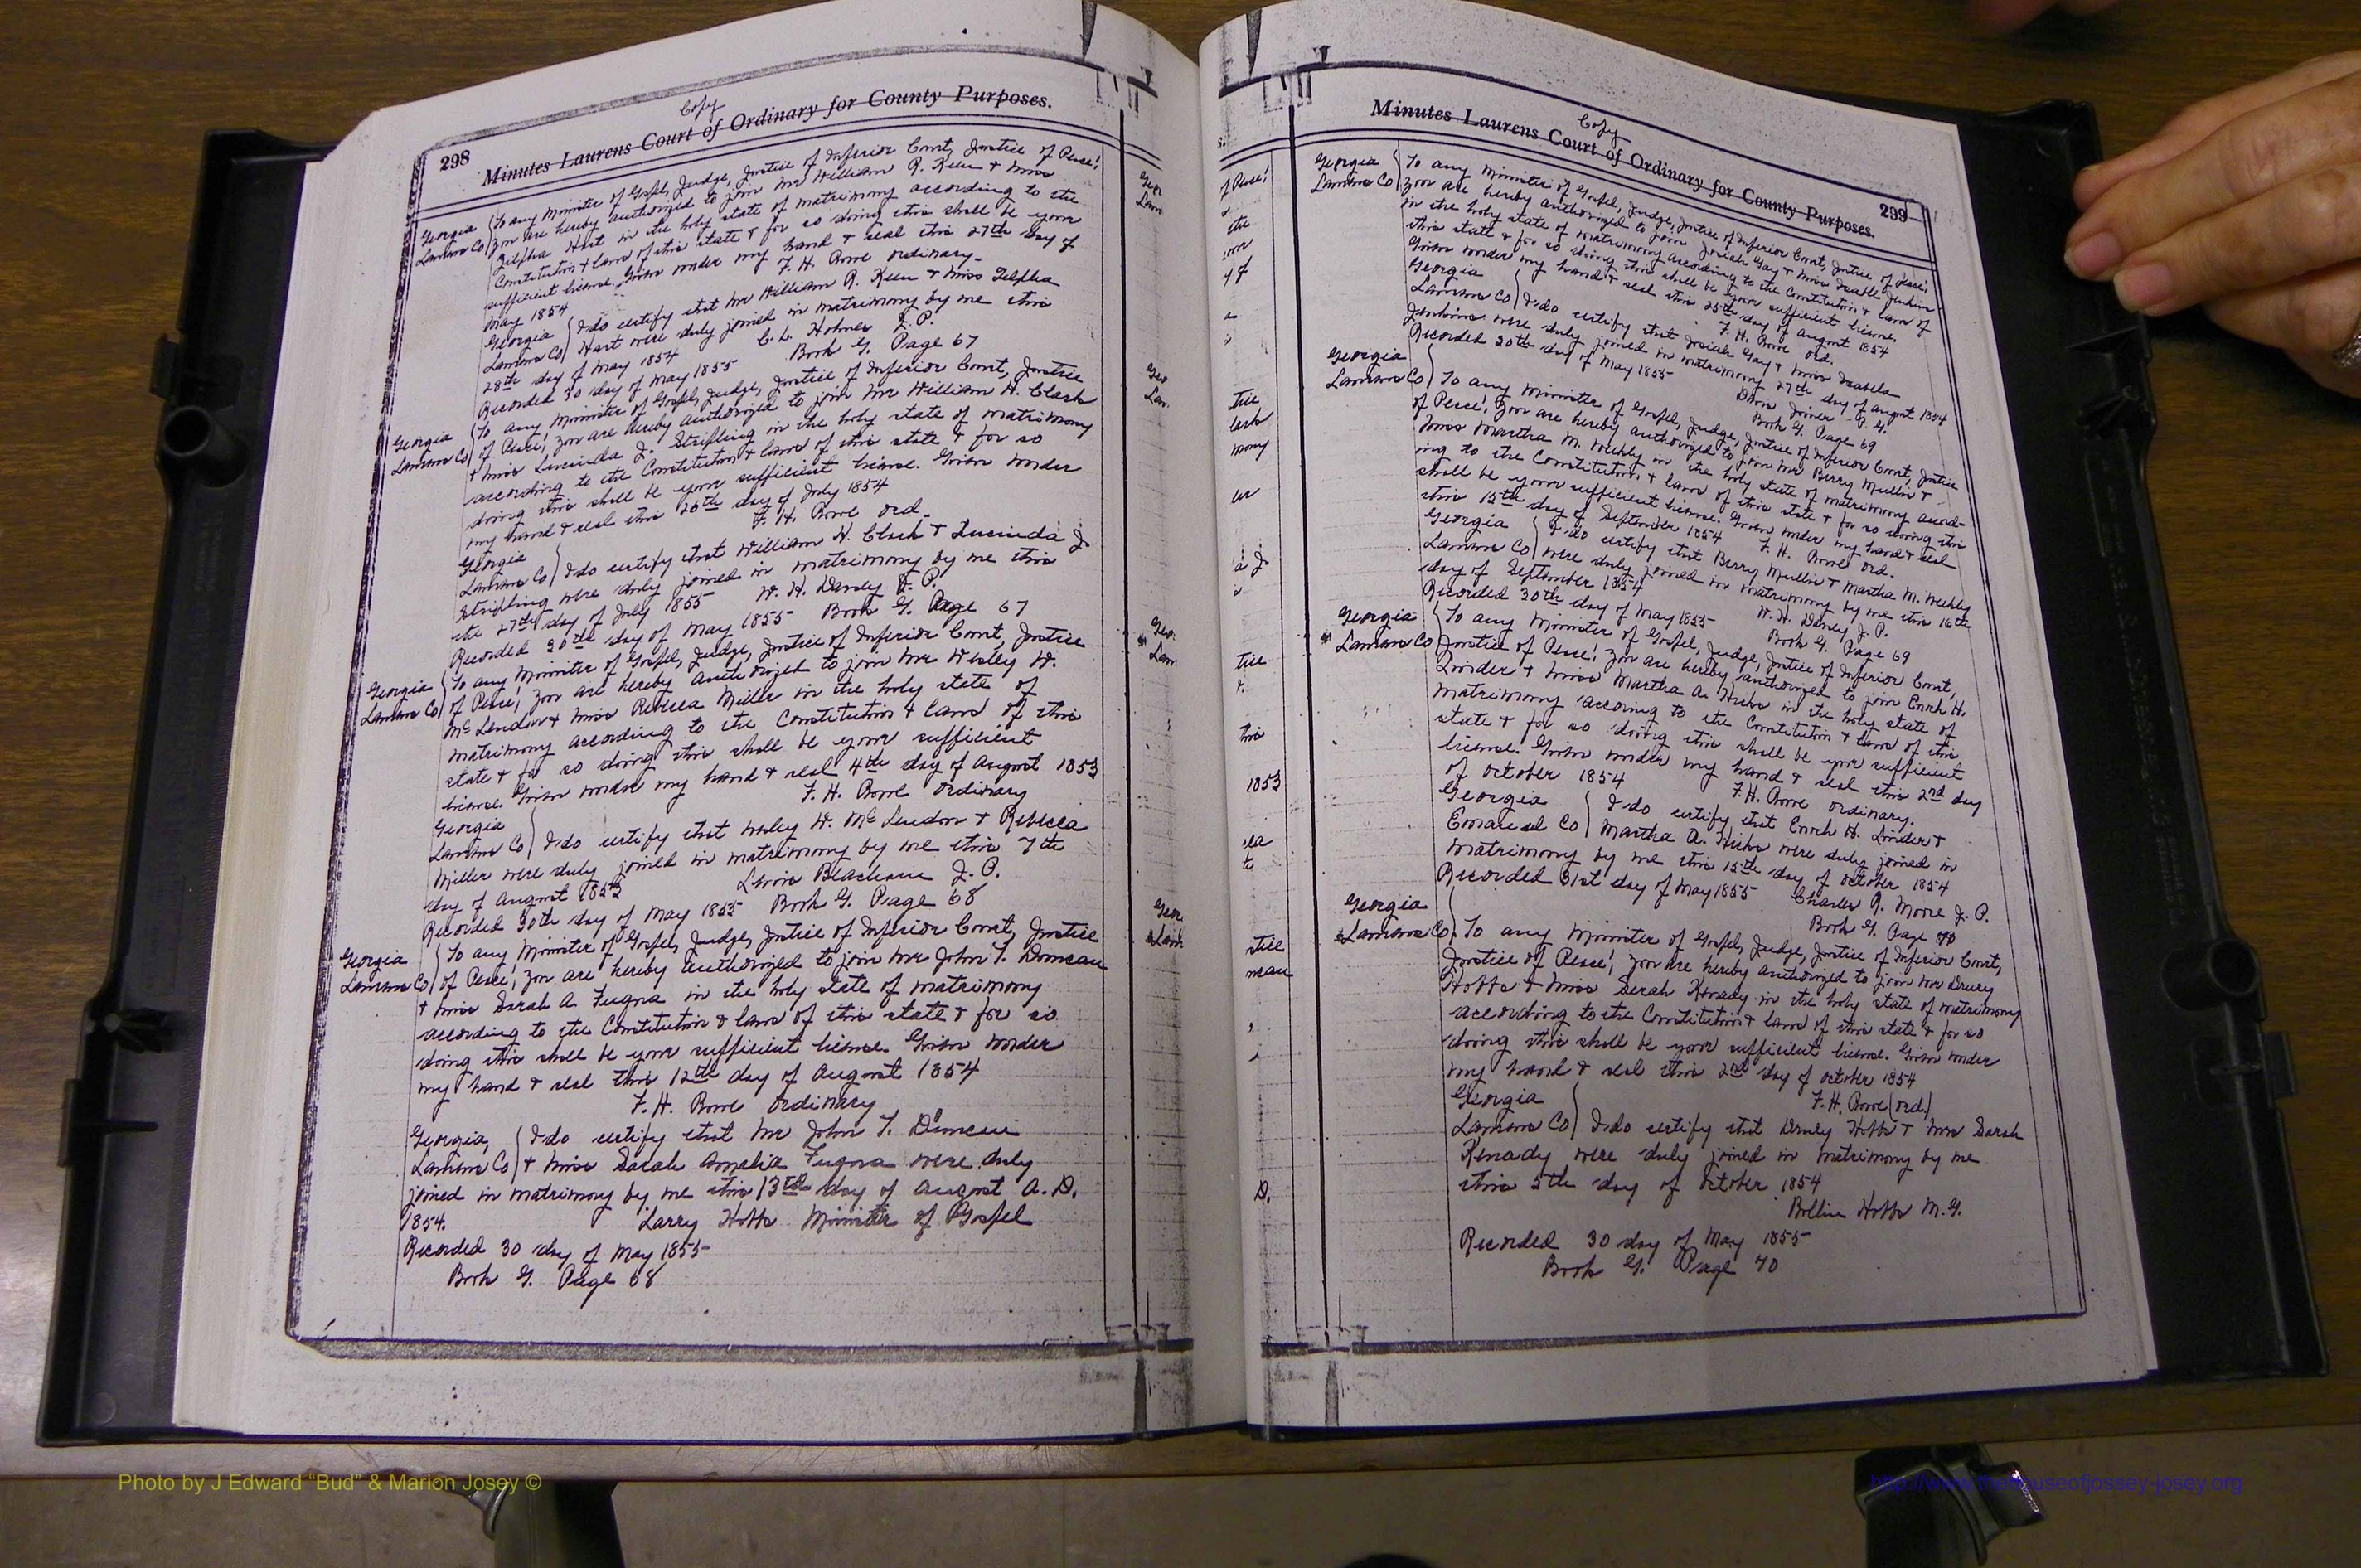 Copy
298 Minutes Laurens Court of Ordinary for County Purposes.
Georgia To any Minister of Gospel, Judge, Justice of Inferior Court, Justice of Peace!
Laurens Co You are hereby authorized to join Mr William R. Keen + Miss
Zilpha Hart in the holy state of matrimony according to the
Constitution + laws of this state + for so doing this shall be your
sufficient license. Given under my hand + seal this 27th day of
May 1854 F. H. Rowe ordinary.
Georgia I do certify that Mr William R. Keen + Miss Zilpha
Laurens Co Hart were duly joined in matrimony by me this
28th day of May 1854 C. L. Holmes J. P.
Recorded 30 day of May 1855 Book G. Page 67
Georgia To any Minister of Gospel, Judge, Justice of Inferior Court, Justice
Laurens Co of Peace! You are hereby authorized to join Mr William H. Clark
+ Miss Lucinda J. Stripling in the holy state of matrimony
according to the Constitution + laws of this state + for so
doing this shall be your sufficient license. Given under
my hand + seal this 26th day of July 1854
F. H. Rowe ord.
Georgia
Laurens Co I do certify that William H. Clark + Lucinda J.
Stripling were duly joined in matrimony by me this
the 27th day of July 1855 W. H. J. P.
Recorded 30th day of May 1855 Book G. Page 67
Georgia To any Minister of Gospel, Judge, Justice of Inferior Court, Justice
Laurens Co of Peace! You are hereby authorized to join Mr Wesley W.
McLendon + Miss Rebecca Miller in the holy state of
matrimony according to the Constitution + laws of this
state + for so doing this shall be your sufficient
license. Given under my hand + seal 4th day of August 1853
F. H. Rowe Ordinary
Georgia
Laurens Co I do certify that Wesley W. McLendon + Rebecca
Miller were duly joined in matrimony by me this 7th
day of August 1853 Blackshear J. P.
Recorded 30th day of May 1855 Book G. Page 68
Georgia To any Minister of Gospel, Judge, Justice of Inferior Court, Justice
Laurens Co of Peace! You are hereby authorized to join Mr John T. Duncan
+ Miss Sarah A. Fuqua in the holy state of matrimony
according to the Constitution + laws of this state + for so
doing this shall be your sufficient license. Given under
my hand + seal this 12th day of August 1854
F. H. Rowe Ordinary
Georgia, I do certify that Mr John T. Duncan
Laurens Co + Miss Sarah Amelia Fuqua were duly
joined in matrimony by me this 13th day of August A. D.
1854. Larry Hobbs Minister of Gospel
Recorded 30 day of May 1855
Book G. Page 68
Copy
Minutes Laurens Court of Ordinary for County Purposes. 299
Georgia To any Minister of Gospel, Judge, Justice of Inferior Court, Justice of Peace!
Laurens Co You are hereby authorized to join Josiah Gay + Miss Jenkins
in the holy state of matrimony according to the Constitution + laws of
this state + for so doing this shall be your sufficient license.
Given under my hand + seal this 25th day of August 1854
Georgia F. H. Rowe ord.
Laurens Co I do certify that Josiah Gay + Miss Isabela
Jenkins were duly joined in matrimony 27th day of August 1854
Joiner
Recorded 30th day of May 1855 Book G. Page 69
Georgia To any Minister of Gospel, Judge, Justice of Inferior Court, Justice
Laurens Co of Peace! You are hereby authorized to join Mr Berry Mullis +
Miss Martha M. Weekly in the holy state of matrimony accord-
ing to the Constitution + laws of this state + for so doing this
shall be your sufficient license. Given under my hand + seal
this 15th day of September 1854 F. H. Rowe Ord.
Georgia I do certify that Berry Mullis + Martha M. Weekly
Laurens Co were duly joined in matrimony by me this 16th
day of September 1854 W. H. J. P.
Recorded 30th day of May 1855 Book G. Page 69
Georgia To any Minister of Gospel, Judge, Justice of Inferior Court,
Laurens Co Justice of Peace! You are hereby authorized to join Enoch H.
Linder + Miss Martha A. Hicks in the holy state of
matrimony according to the Constitution + laws of this
state + for so doing this shall be your sufficient
license. Given under my hand + seal this 2nd day
of October 1854 F. H. Rowe Ordinary.
Georgia I do certify that Enoch H. Linder +
Emanuel Co Martha A. Hicks were duly joined in
matrimony by me this 15th day of October 1854
Charles R. Moore J. P.
Recorded 31st day of May 1855 Book G. Page 70
Georgia
Laurens Co To any Minister of Gospel, Judge, Justice of Inferior Court,
Justice of Peace! You are hereby authorized to join Mr Drury
Hobbs + Miss Sarah Kinady in the holy state of matrimony
according to the Constitution + laws of this state + for so
doing this shall be your sufficient license. Given under
my hand + seal this 2nd day of October 1854
Georgia F. H. Rowe (ord)
Laurens Co I do certify that Drury Hobbs + Miss Sarah
Kinady were duly joined in matrimony by me
this 5th day of October 1854
Hobbs M. G.
Recorded 30 day of May 1855
Book G. Page 70
Photo by J Edward “Bud” & Marion Josey ©
http://www.thehouseofjossey-josey.org